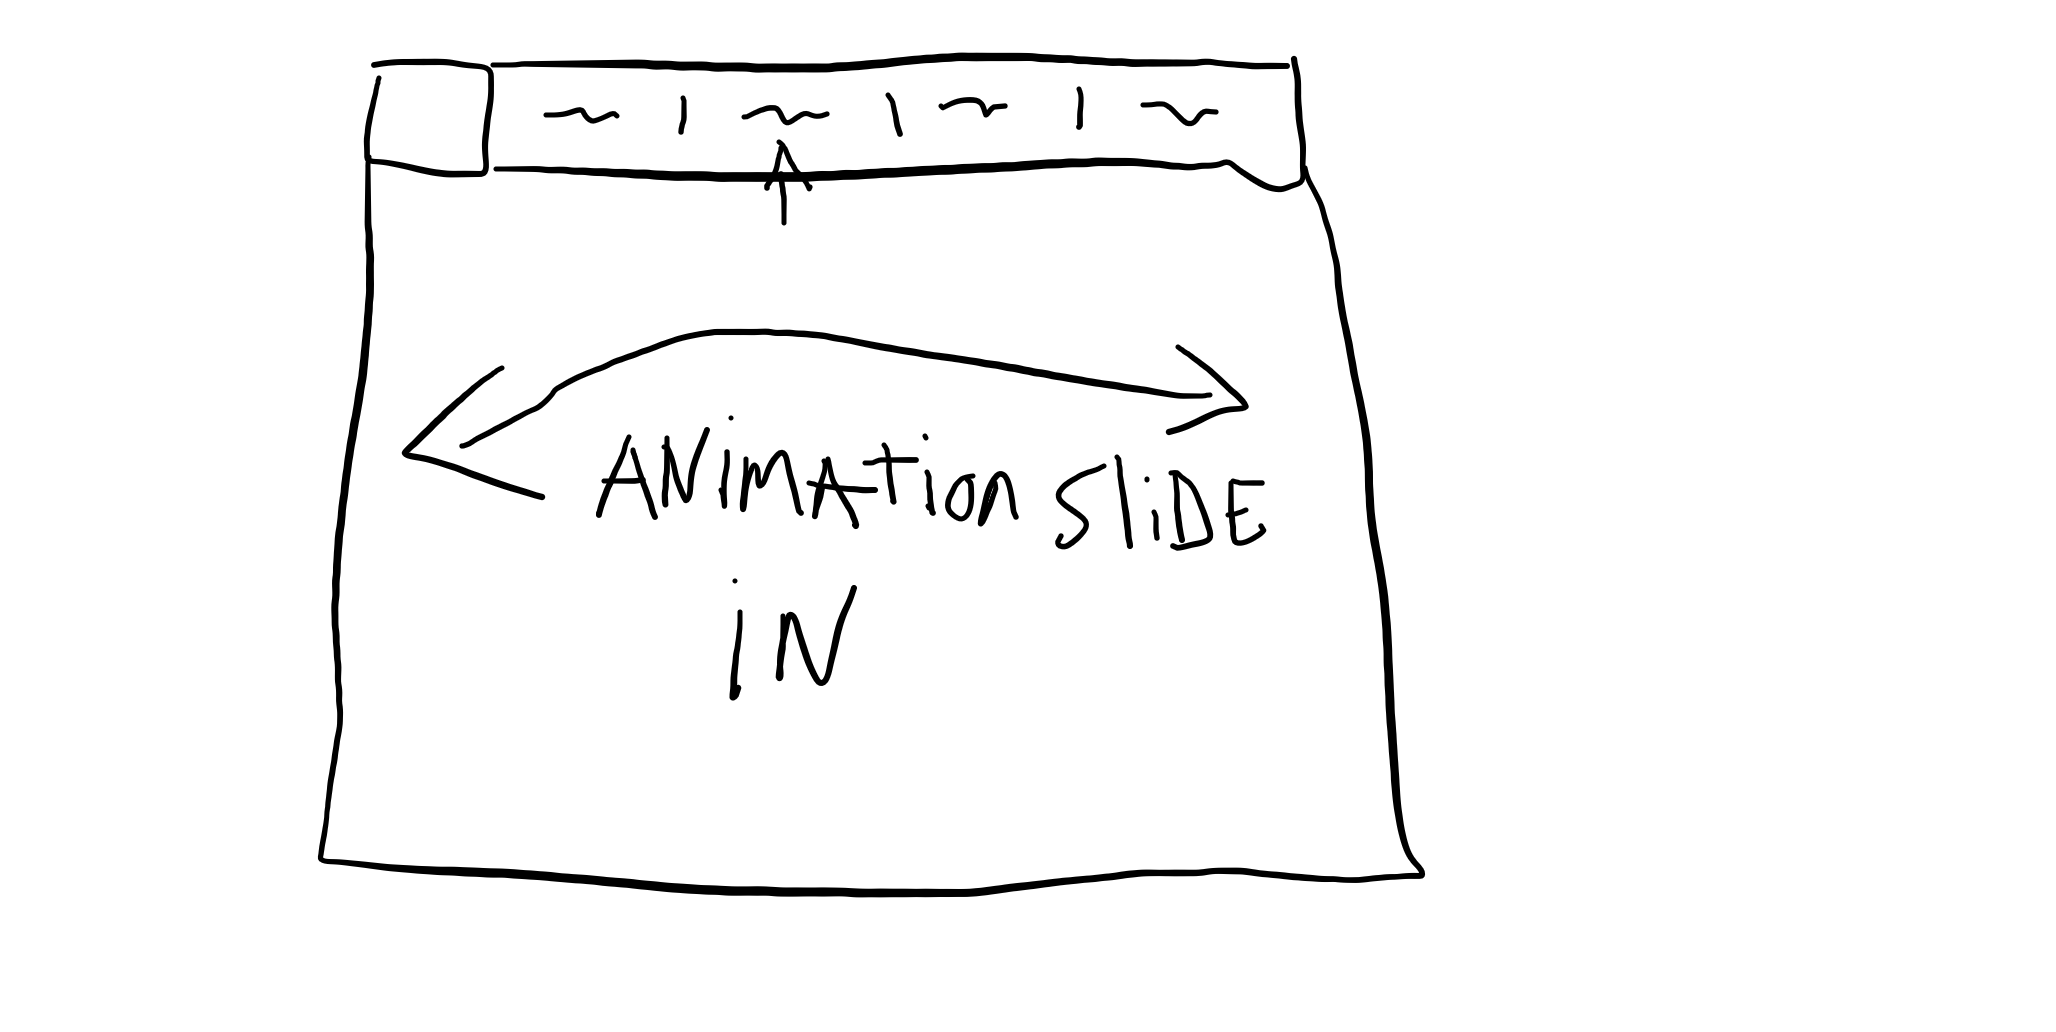 ANiMATion SliDE
iN